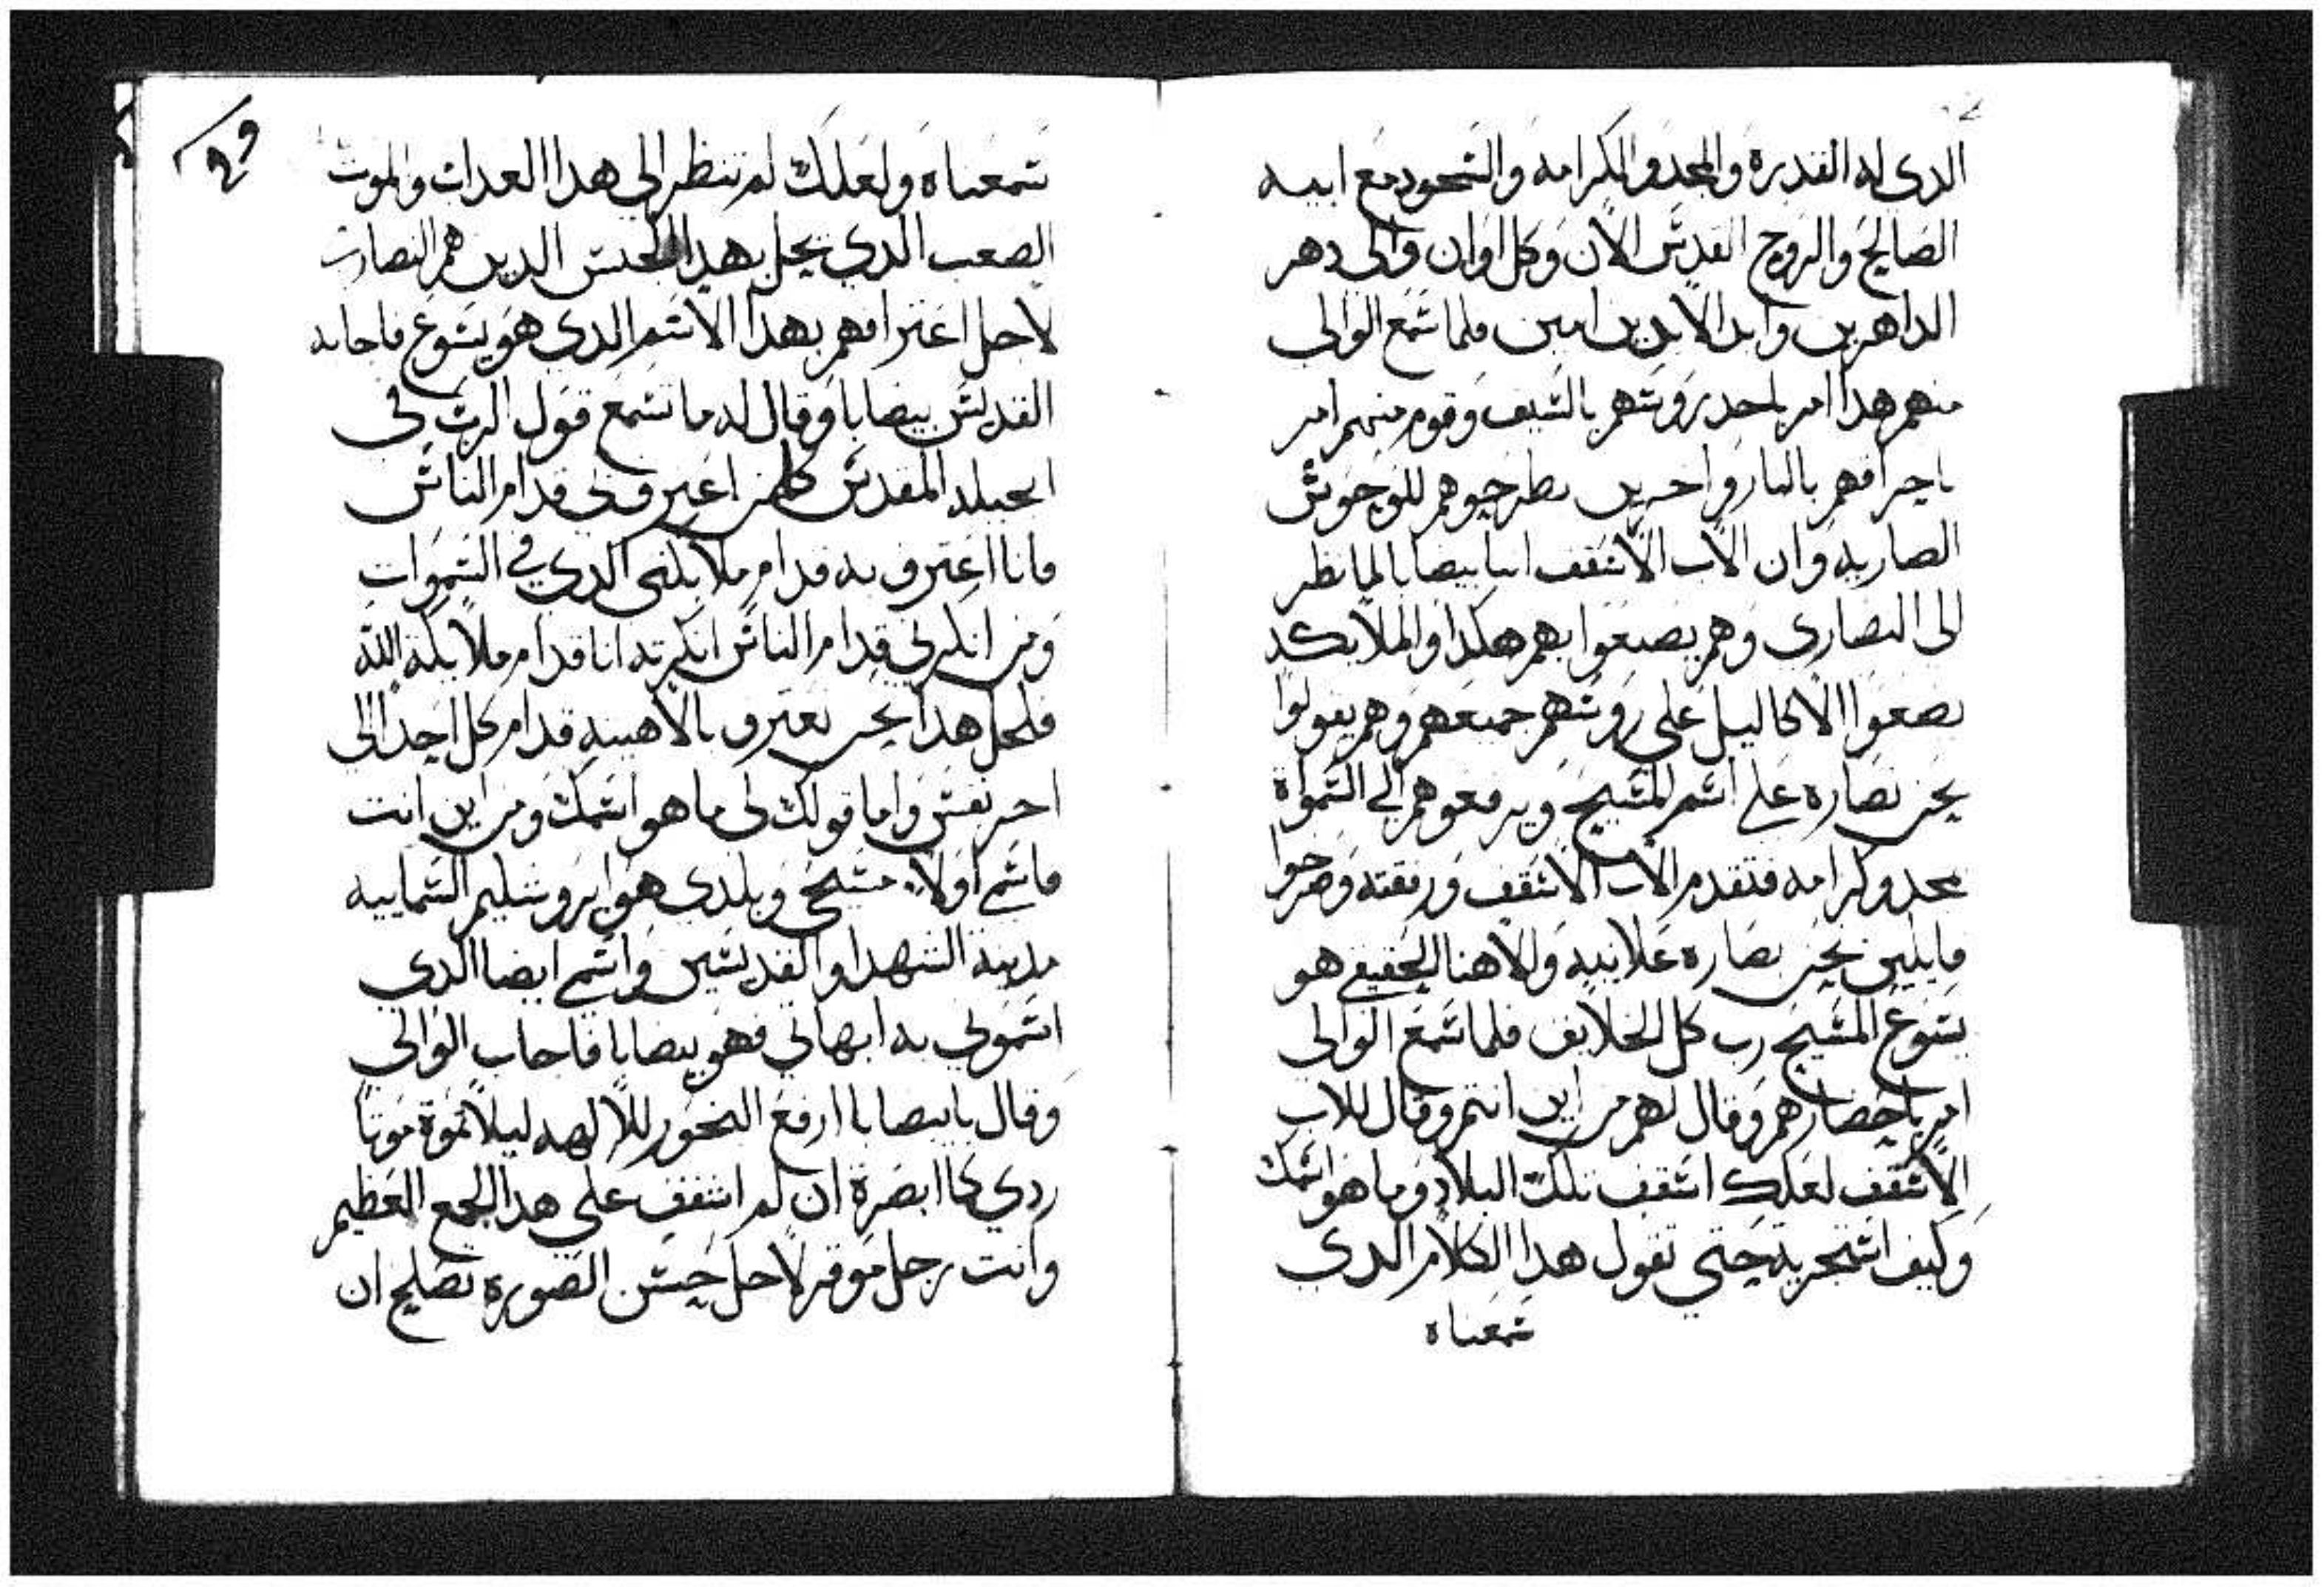 الدى له القدرة والمجد والكرامه والسجود مع ابيه
الصالح والروح القدس الان وكل اوان والى دهر
الداهرين وابد الابدين امين فلما سمع الوالى
منهم هدا امر باخد روسهم بالسيف وقوم منهم امر
باحراقهم بالنار واخرين يطرحوهم للوحوش
الضاريه وان الاب الاسقف انبا بيصابا لما نظر
الى النصارى وهم يصنعوا بهم هكدا والملايكه
يضعوا الاكاليل على روسهم جميعهم وهم يقولوا
نحن نصاره على اسم المسيح ويرفعوهم الى السمواة
بمجد وكرامه فتقدم الاب الاسقف ورفقته وصرخوا
قايلين نحن نصاره علانيه والاهنا الحقيقى هو
يسوع المسيح رب كل الخلايق فلما سمع الوالى
امر باحضارهم وقال لهم من اين انتم وقال للاب
الاسقف لعلك اسقف تلك البلاد وما هو اسمك
وكيف استجريت حتى تقول هدا الكلام الدى
سمعناه
سمعناه ولعلك لم تنظر الى هدا العداب والموت
الصعب الدي يحل بهدا الجنس الدين هم النصارى
لاجل اعترافهم بهدا الاسم الدي هو يسوع فاجابه
القديس بيصابا وقال له ما تسمع قول الرب فى
انجيله المقدس كلمن اعترف بى قدام الناس
فانا اعترف به قدام ملايكتى الدى في السموات
ومن انكرنى قدام الناس انكرته انا قدام ملايكة الله
فلجل هدا نحن نعترف بالاهيته قدام كل احد الى
اخر نفس واما قولك لى ما هو اسمك ومن اين انت
فاسمي اولا مسيحى وبلدى هو ايروشليم السماييه
مدينة الشهدا والقديسين واسمي ايضا الدي
اسمونى به ابهاتي فهو بيصابا فاجاب الوالي
وقال يا بيصابا ارفع البخور للالهه ليلا تموة موتا
ردي كما ابصرة ان لم اشفق على هدا الجمع العظيم
وانت رجل موقر لاجل حسن الصوره تصلح ان